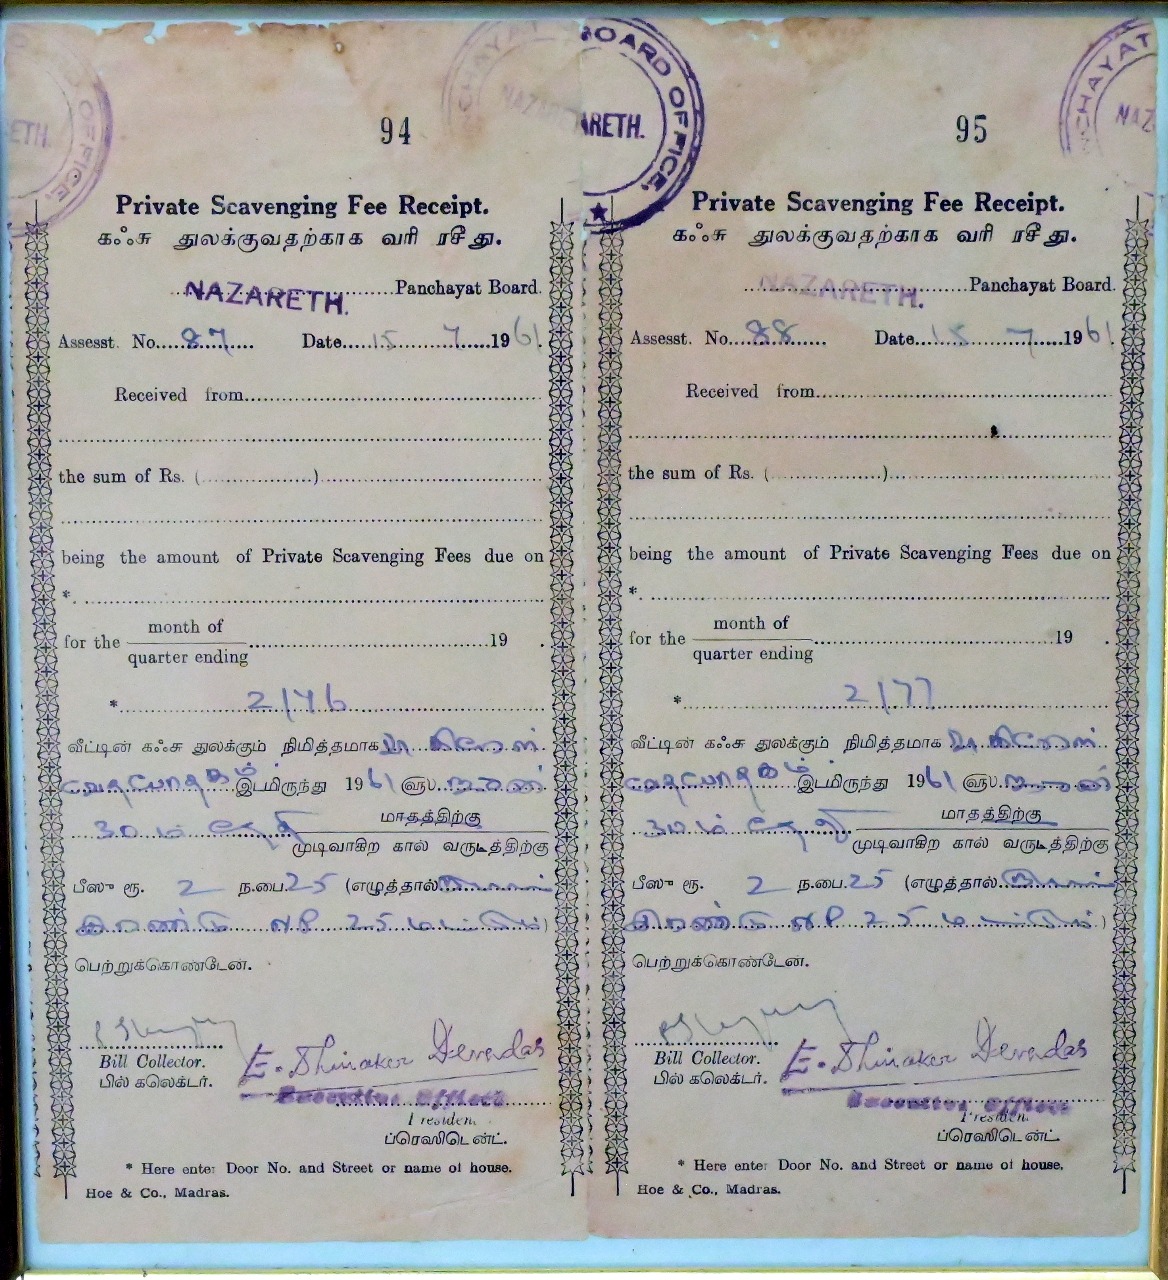 OFFICE,
ETH.
94
Private Scavenging Fee Receipt.
கஃசு துலக்குவதற்காக வரி ரசீது.
NAZARETH. Panchayat Board.
Assesst. No. 87 Date 15 7 1961.
Received from
the sum of Rs. ( )
being the amount of Private Scavenging Fees due on
*
for the month of
quarter ending 19 .
* 2/76
வீட்டின் கஃசு துலக்கும் நிமித்தமாக
இடமிருந்து 1961 ளு
மாதத்திற்கு
முடிவாகிற கால் வருடத்திற்கு
பீஸு ரூ. 2 ந.பை. 25 (எழுத்தால்
இரண்டு NP 25 மட்டும்)
பெற்றுக்கொண்டேன்.
Bill Collector.
பில் கலெக்டர்.
E. Dhinaker Devadas
Executive Officer
President.
ப்ரெஸிடெண்ட்.
* Here enter Door No. and Street or name of house.
Hoe & Co., Madras.
CHAYAT BOARD OFFICE,
NAZARETH.
95
Private Scavenging Fee Receipt.
கஃசு துலக்குவதற்காக வரி ரசீது.
NAZARETH. Panchayat Board.
Assesst. No. 88 Date 15 7 1961.
Received from
the sum of Rs. ( )
being the amount of Private Scavenging Fees due on
*
for the month of
quarter ending 19 .
* 2/77
வீட்டின் கஃசு துலக்கும் நிமித்தமாக
இடமிருந்து 1961 ளு
மாதத்திற்கு
முடிவாகிற கால் வருடத்திற்கு
பீஸு ரூ. 2 ந.பை. 25 (எழுத்தால்
இரண்டு NP 25 மட்டும்)
பெற்றுக்கொண்டேன்.
Bill Collector.
பில் கலெக்டர்.
E. Dhinaker Devadas
Executive Officer
President.
ப்ரெஸிடெண்ட்.
* Here enter Door No. and Street or name of house.
Hoe & Co., Madras.
CHAYAT
NAZ